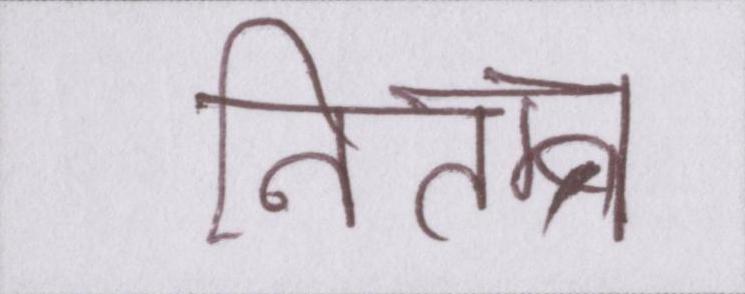 नितम्ब